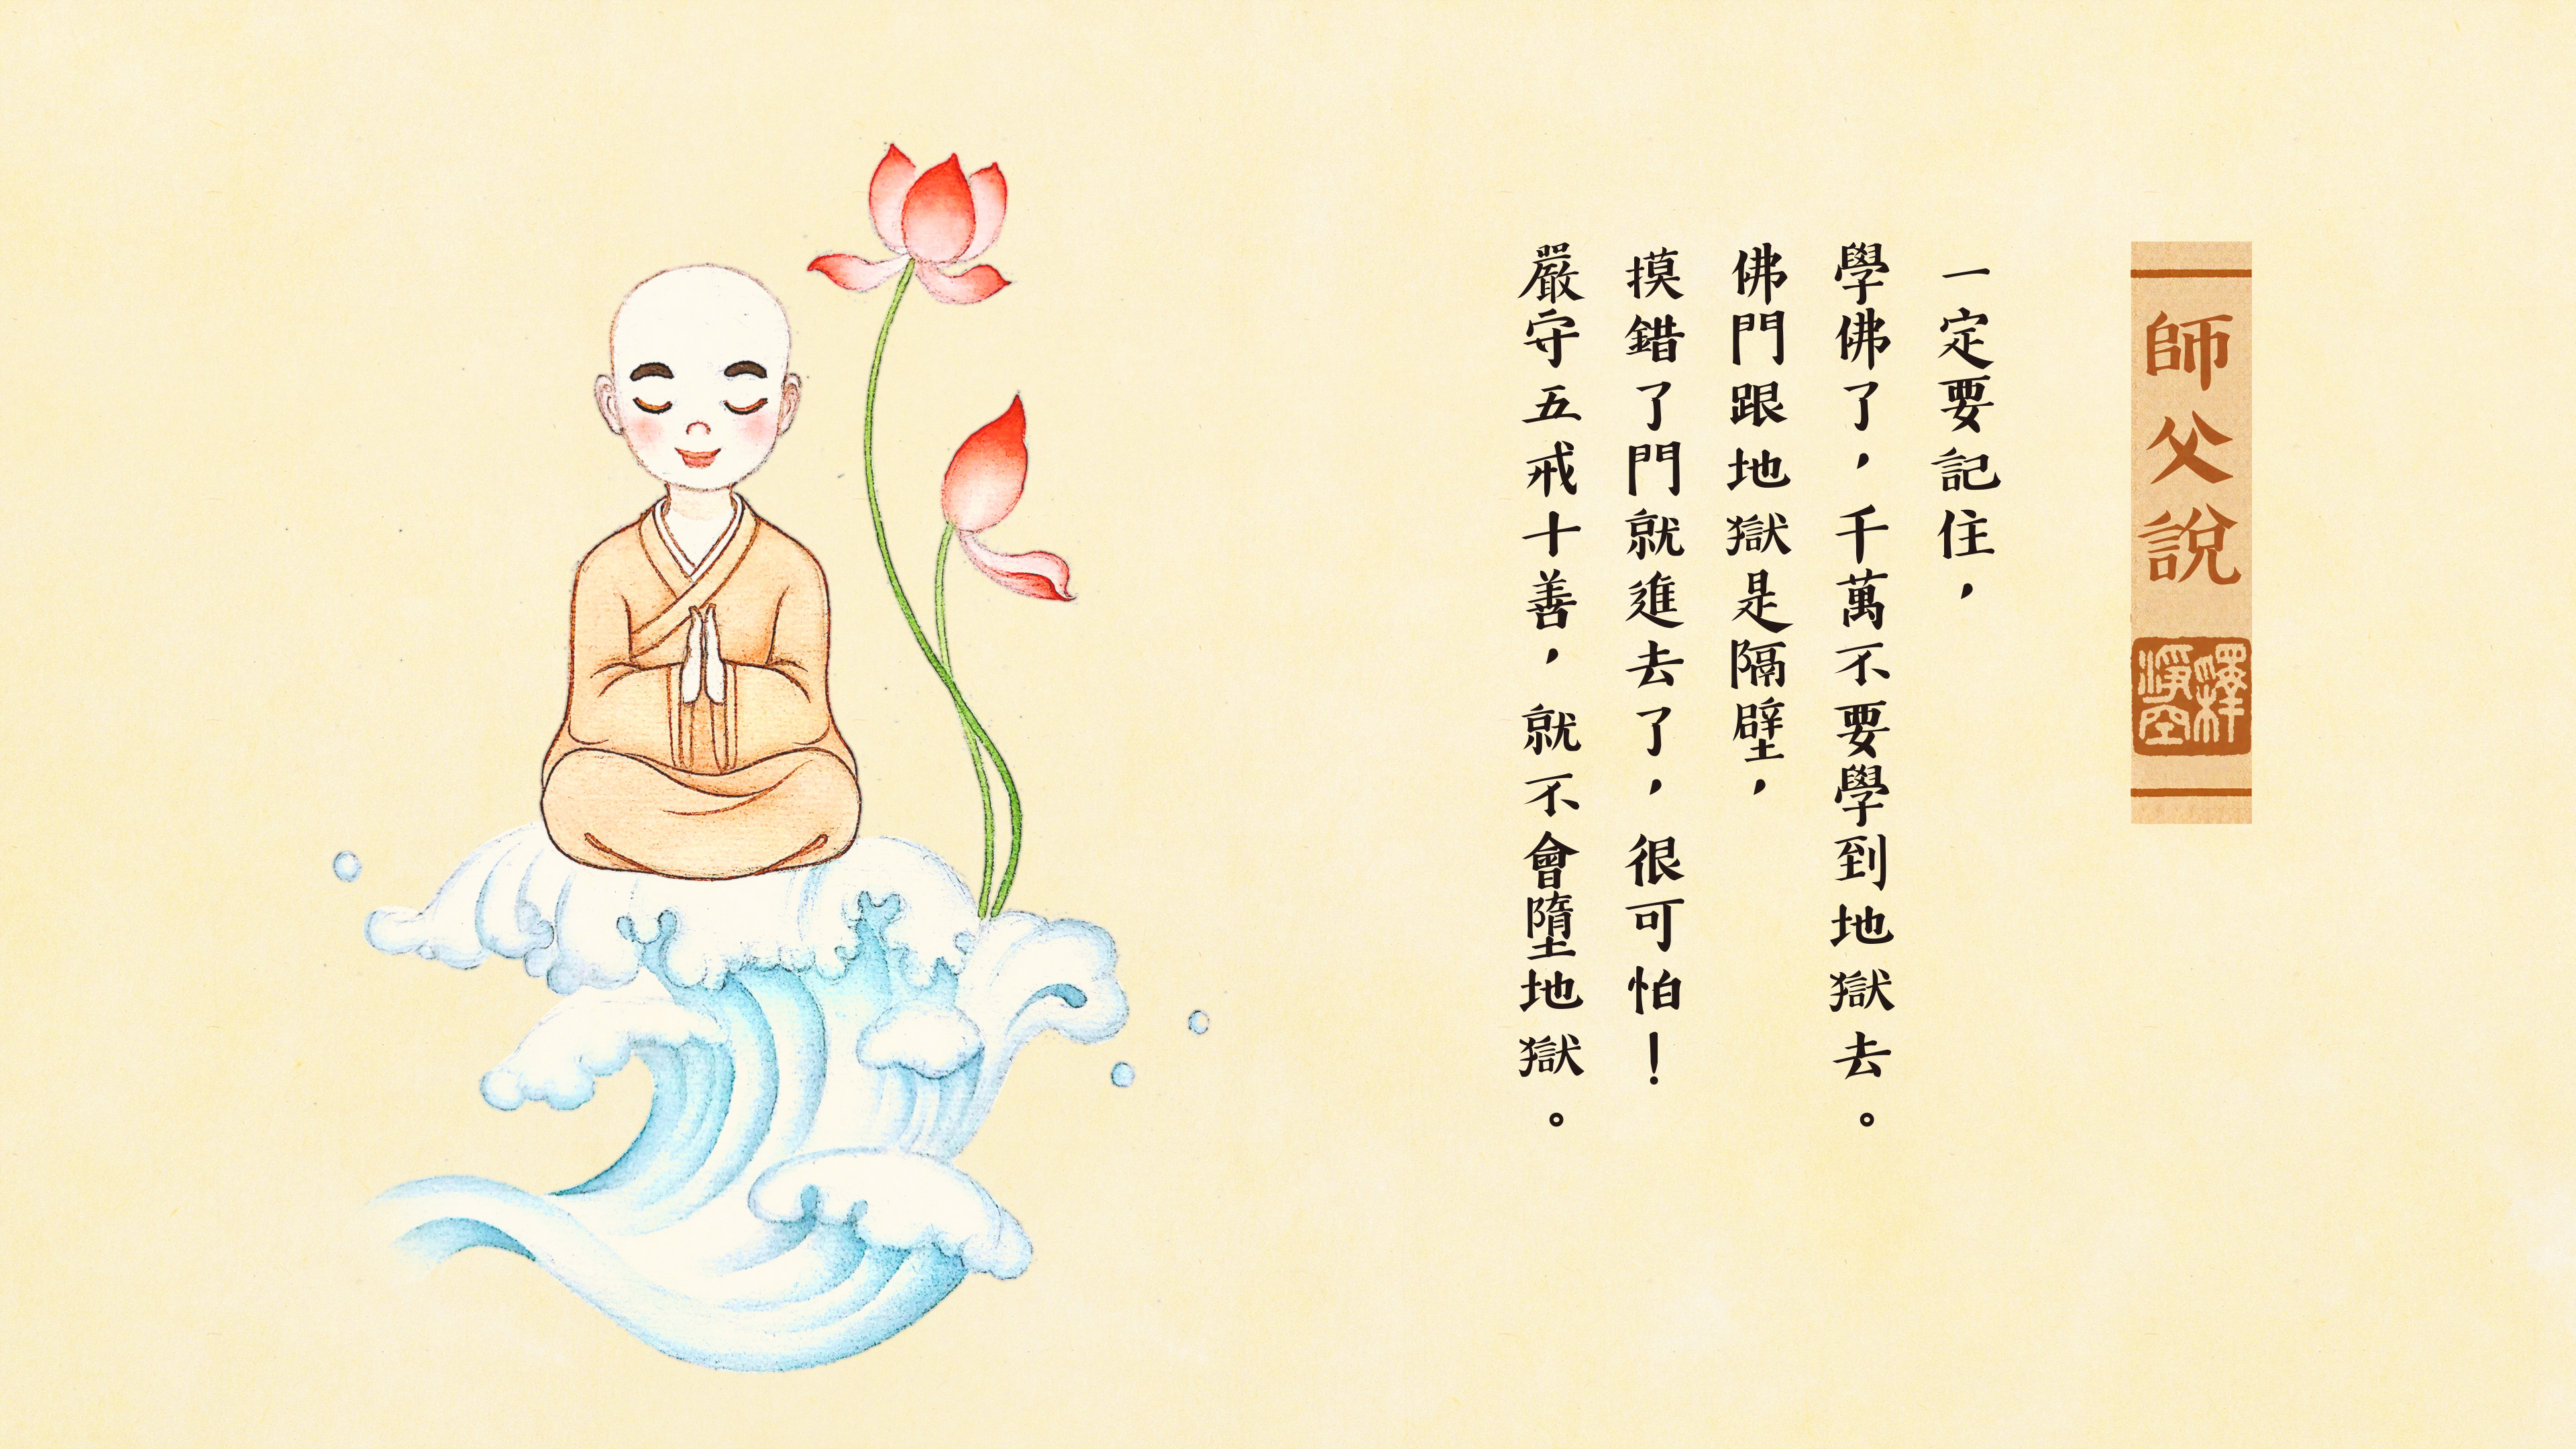 師父說
釋淨空
一定要記住，
學佛了，千萬不要學到地獄去。
佛門跟地獄是隔壁，
摸錯了門就進去了，很可怕！
嚴守五戒十善，就不會墮地獄。